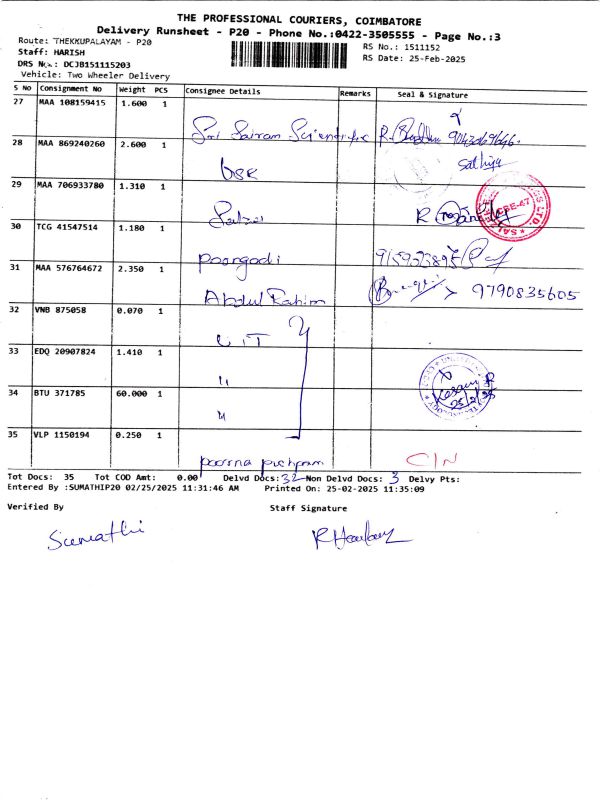 THE PROFESSIONAL COURIERS, COIMBATORE
Delivery Runsheet - P20 - Phone No.:0422-3505555 - Page No.:3
Route: THEKKUPALAYAM - P20
RS No.: 1511152
Staff: HARISH
RS Date: 25-Feb-2025
DRS No.: DCJB151115203
Vehicle: Two Wheeler Delivery
S No Consignment No Weight PCS Consignee Details Remarks Seal & Signature
27 MAA 108159415 1.600 1
Sri Sairam Scientific R.
28 MAA 869240260 2.600 1
GSR Sathiya
29 MAA 706933780 1.310 1
R
30 TCG 41547514 1.180 1
Poorgodi
31 MAA 576764672 2.350 1
Abdul Rahim 9790835605
32 VNB 875058 0.070 1
UIT
33 EDQ 20907824 1.410 1
"
34 BTU 371785 60.000 1
"
25/2/25
35 VLP 1150194 0.250 1
C/N
Tot Docs: 35 Tot COD Amt: 0.00 Delvd Docs: 32 Non Delvd Docs: 3 Delvy Pts:
Entered By :SUMATHIP20 02/25/2025 11:31:46 AM Printed On: 25-02-2025 11:35:09
Verified By Staff Signature
Sumathi